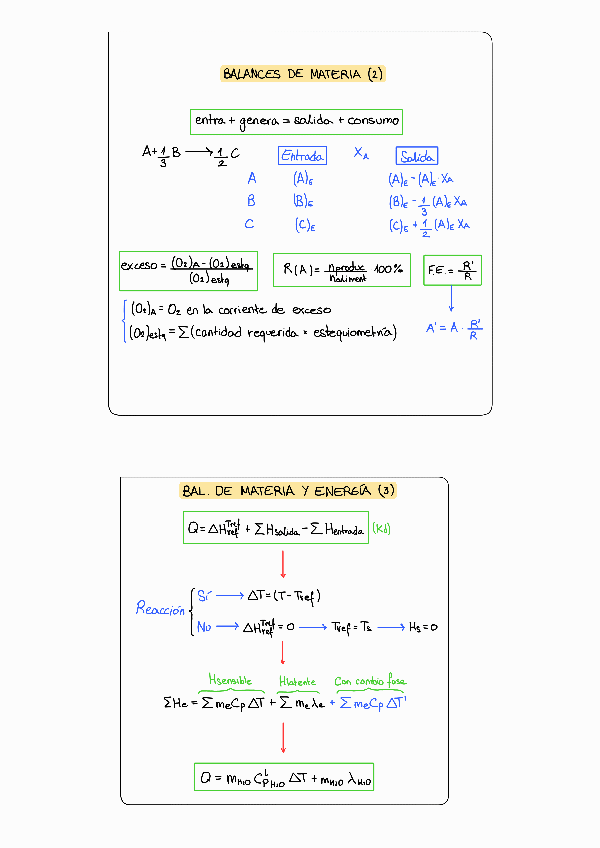 BALANCES DE MATERIA (2)
entra + genera = salida + consumo
A + 1/3 B → 1/2 C
Entrada X_A Salida
A (A)_E (A)_E - (A)_E · X_A
B (B)_E (B)_E - 1/3 (A)_E X_A
C (C)_E (C)_E + 1/2 (A)_E X_A
exceso = ((O2)_A - (O2)estq) / (O2)estq
R(A) = nproduc / naliment 100%
F.E. = R' / R
(O2)_A = O2 en la corriente de exceso
(O2)estq = Σ(cantidad requerida × estequiometría)
A' = A · R'/R
BAL. DE MATERIA Y ENERGÍA (3)
Q = ΔH_ref^Tref + ΣHsalida - ΣHentrada (KJ)
Reacción
Sí → ΔT = (T - Tref)
No → ΔH_ref^Tref = 0 → Tref = Ts → Hs = 0
Hsensible Hlatente Con cambio fase
ΣHe = Σ meCp ΔT + Σ me λe + Σ meCp ΔT'
Q = m_H2O C_p^L_H2O ΔT + m_H2O λ_H2O